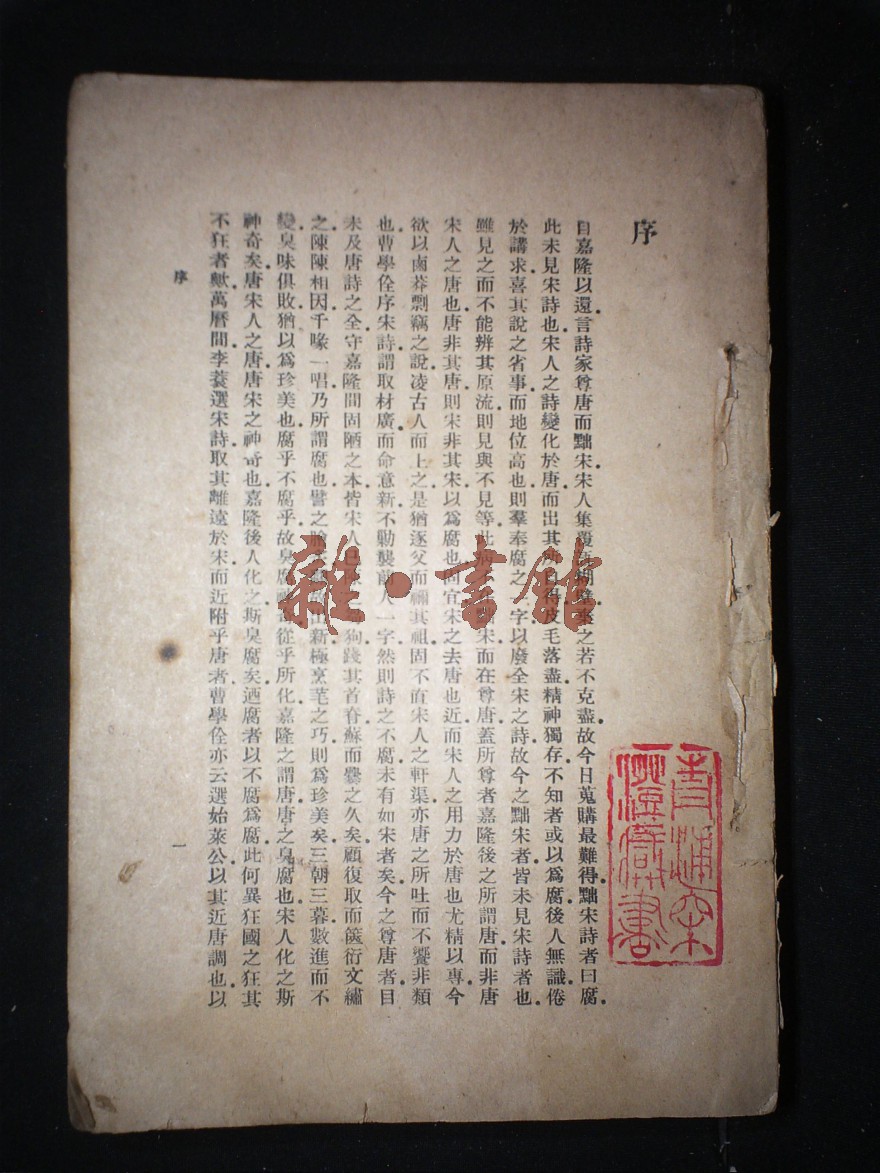 序
自嘉隆以還言詩家尊唐而黜宋宋人集覆瓿糊壁棄之若不克盡故今日蒐購最難得黜宋詩者曰腐
此未見宋詩也宋人之詩變化於唐而出其所自得皮毛落盡精神獨存不知者或以爲腐後人無識倦
於講求喜其說之省事而地位高也則羣奉腐之一字以廢全宋之詩故今之黜宋者皆未見宋詩者也
雖見之而不能辨其原流則見與不見等此病不在黜宋而在尊唐蓋所尊者嘉隆後之所謂唐而非唐
宋人之唐也唐非其唐則宋非其宋以爲腐也固宜宋之去唐也近而宋人之用力於唐也尤精以專今
欲以鹵莽剽竊之說凌古人而上之是猶逐父而禰其祖固不直宋人之軒渠亦唐之所吐而不饗非類
也曹學佺序宋詩謂取材廣而命意新不勦襲前人一字然則詩之不腐未有如宋者矣今之尊唐者目
未及唐詩之全守嘉隆間固陋之本皆宋人已 狗踐其首脊蘇而爨之久矣顧復取而篋衍文繡
之陳陳相因千喙一唱乃所謂腐也譬之 出新極烹芼之巧則爲珍美矣三朝三暮數進而不
變臭味俱敗猶以爲珍美也腐乎不腐乎故臭腐神奇從乎所化嘉隆之謂唐唐之臭腐也宋人化之斯
神奇矣唐宋人之唐唐宋之神奇也嘉隆後人化之斯臭腐矣迺腐者以不腐爲腐此何異狂國之狂其
不狂者歟萬曆間李蓘選宋詩取其離遠於宋而近附乎唐者曹學佺亦云選始萊公以其近唐調也以
序
一
雜·書館